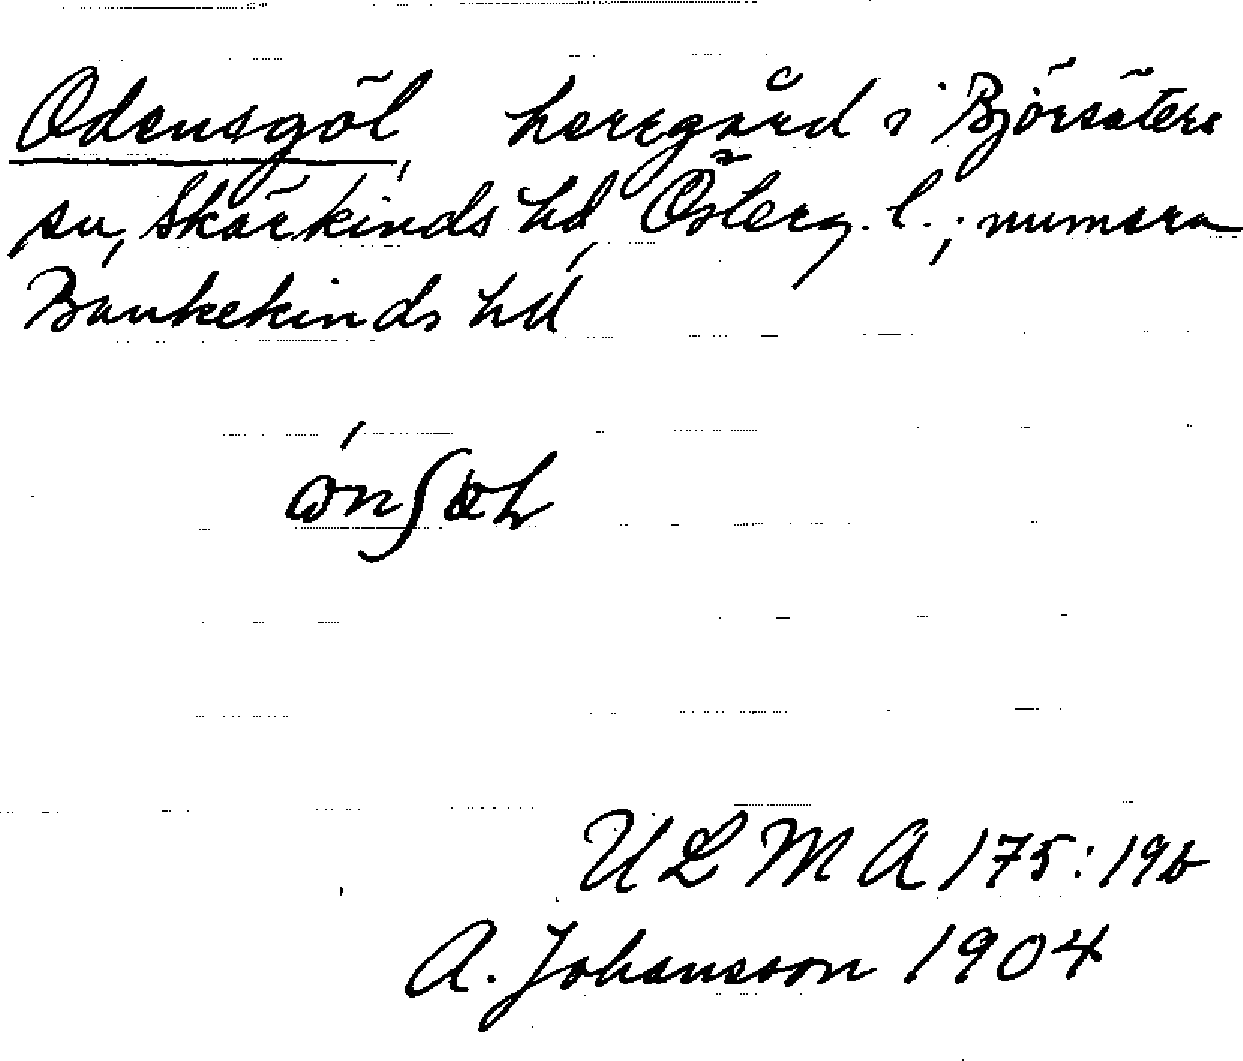 Odensgöl, herregård i Björsäters
sn, Skärkinds hd, Österg. l.; numera
Bankekinds hd
ULMA 175:19b
A. Johansson 1904